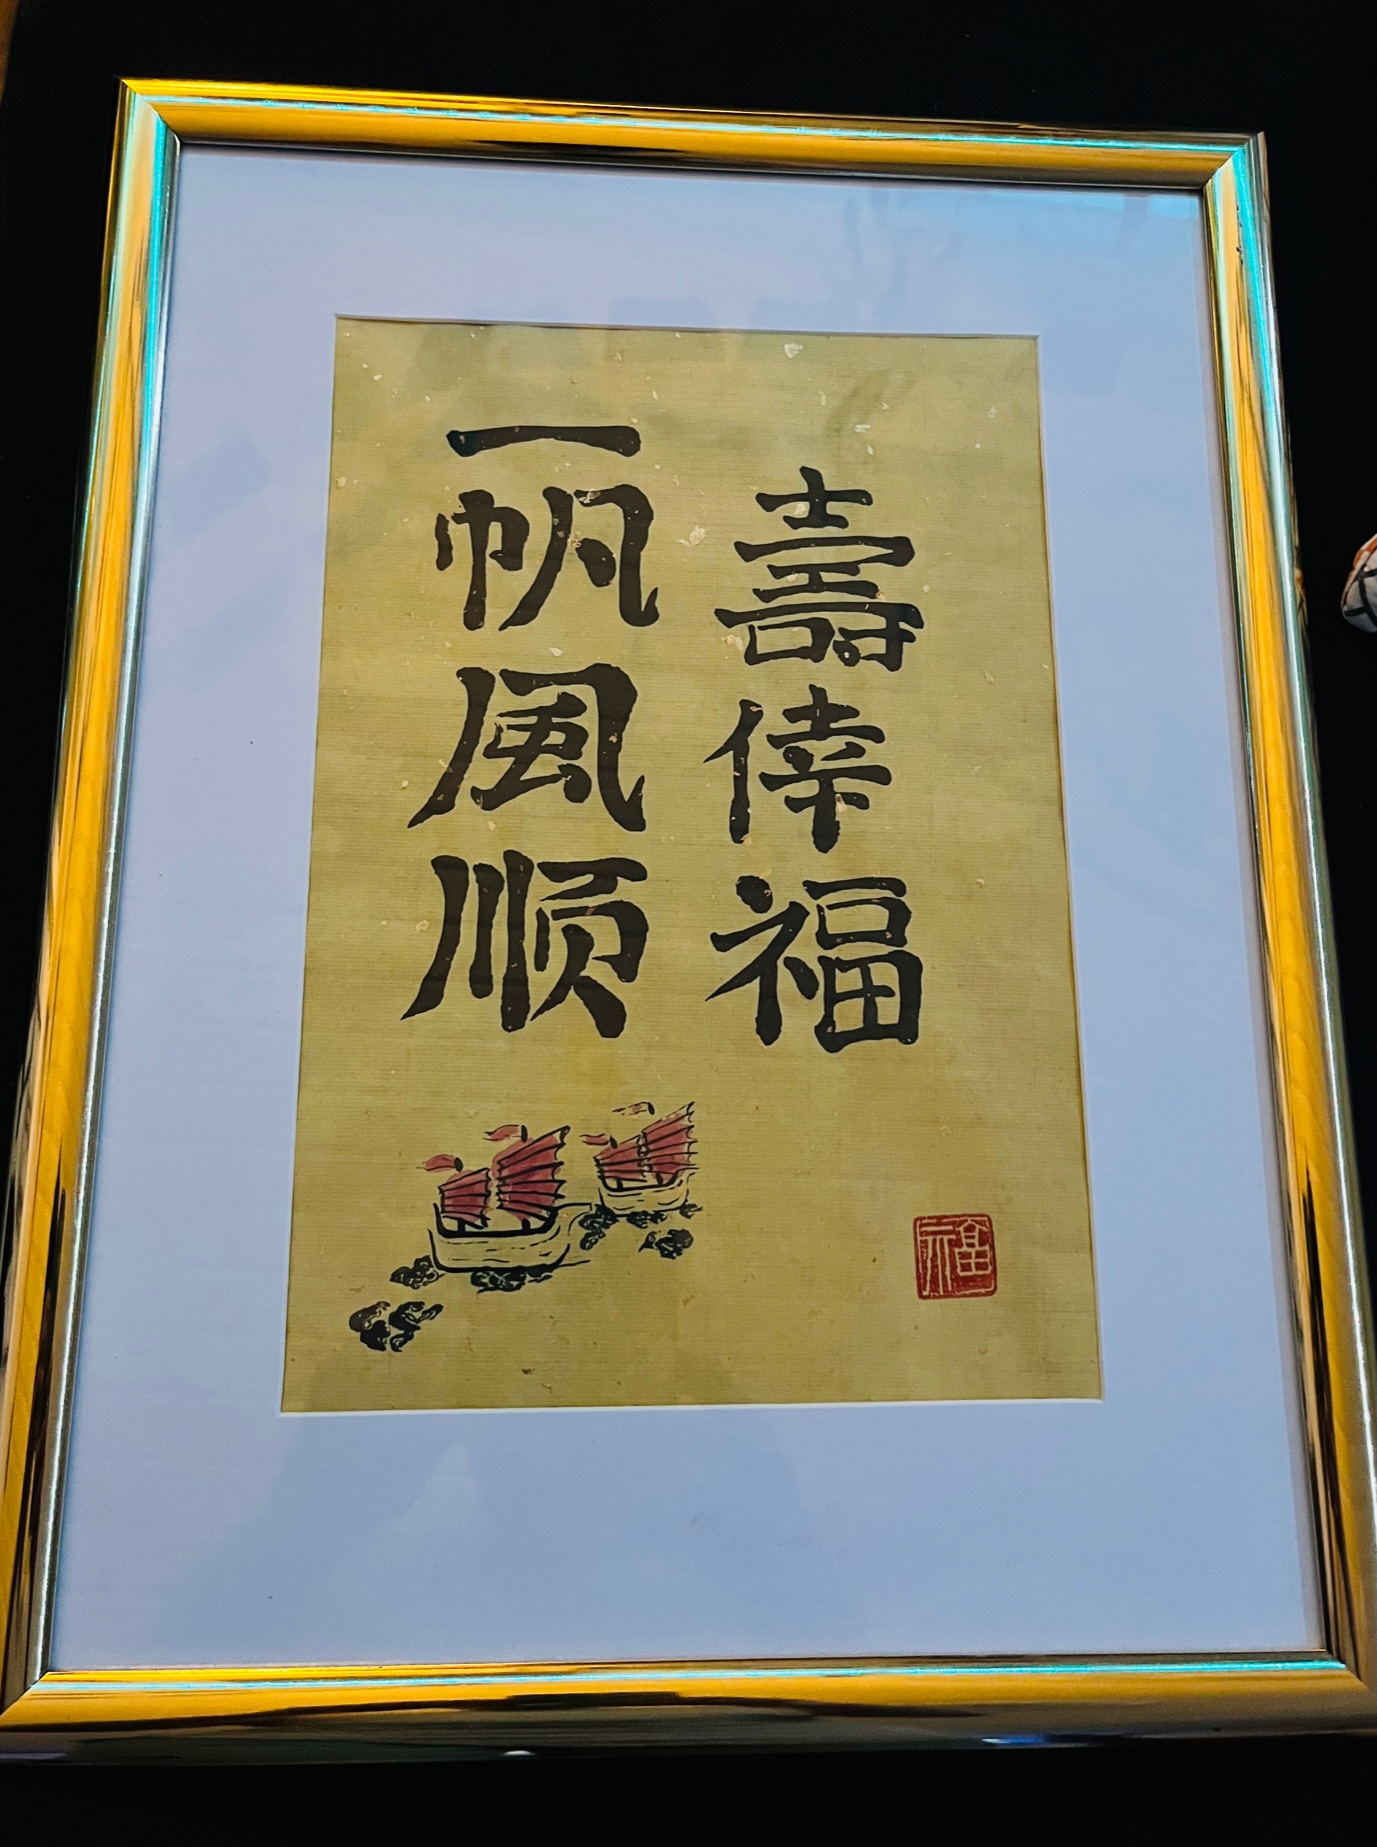 壽倖福
一帆風顺
福